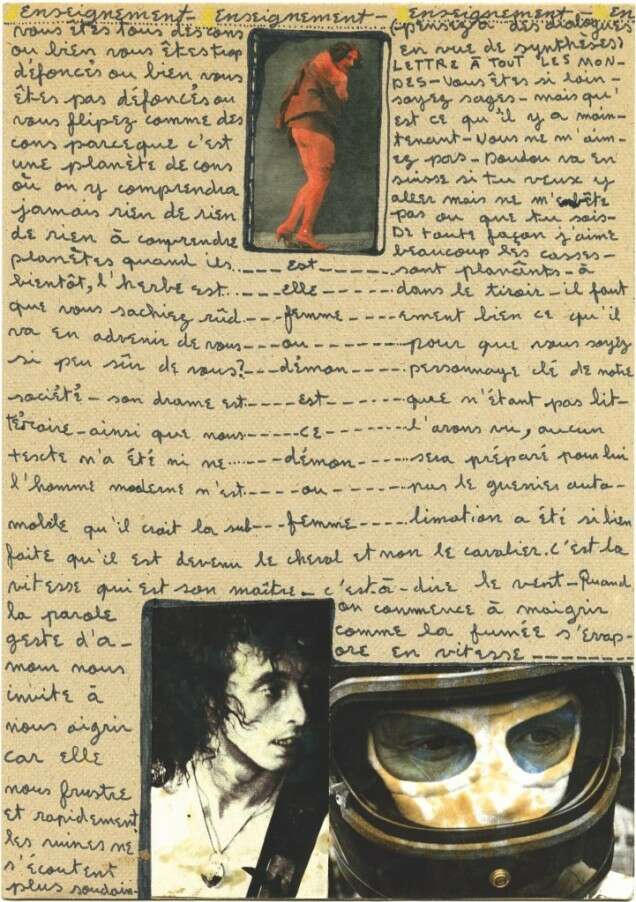 Enseignement - Enseignement - Enseignement - En
vous êtes tous des cons
ou bien vous êtes trop
défoncés ou bien vous
êtes pas défoncés ou
vous flipez comme des
cons parceque c'est
une planète de cons
où on y comprendra
jamais rien de rien
de rien à comprendre
(pensez à des dialogues
en vue de synthèses)
LETTRE À TOUT LES MON-
DES - Vous êtes si loin -
soyez sages - mais qu'
est ce qu'il y a main-
tenant - Vous ne m'aim-
ez pas - Doudou va en
suisse si tu veux y
aller mais ne m'embête
pas ou que tu sois -
De toute façon j'aime
beaucoup les casses -
planètes quand ils ---- est ---- sont planânts - à
bientôt, l'herbe est ---- elle ---- dans le tiroir - il faut
que vous sachiez rûd ---- femme ---- ement bien ce qu'il
va en advenir de vous --- ou ---- pour que vous soyez
si peu sûr de vous? --- démon ---- personnage clé de notre
société - son drame est ---- est ---- que n'étant pas lit-
téraire - ainsi que nous ---- ce ---- l'avons vu, aucun
texte n'a été ni ne ---- démon ---- sera préparé pour lui
l'homme moderne n'est ---- ou ---- pas le guerrier auto-
mobile qu'il croit la sub --- femme ---- limation a été si bien
faite qu'il est devenu le cheval et non le cavalier. C'est la
vitesse qui est son maître - c'est-à-dire le vent - Quand
la parole
geste d'a-
mour nous
invite à
nous aigrir
car elle
nous frustre
et rapidement
les ruines ne
s'écoutent
plus soudain -
on commence à maigrir
comme la fumée s'évap-
ore en vitesse ----